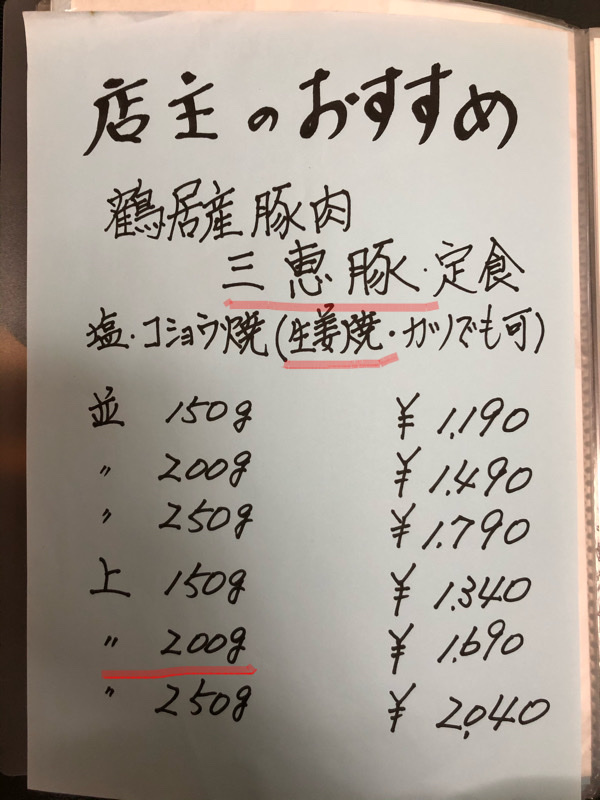 店主のおすすめ
鶴居産豚肉
三恵豚・定食
塩・コショウ焼(生姜焼・カツでも可)
並 150g ¥1,190
〃 200g ¥1,490
〃 250g ¥1,790
上 150g ¥1,340
〃 200g ¥1,690
〃 250g ¥2,040